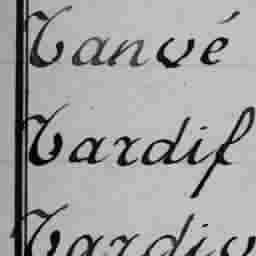 Tanvé
Tardif
Tardiv